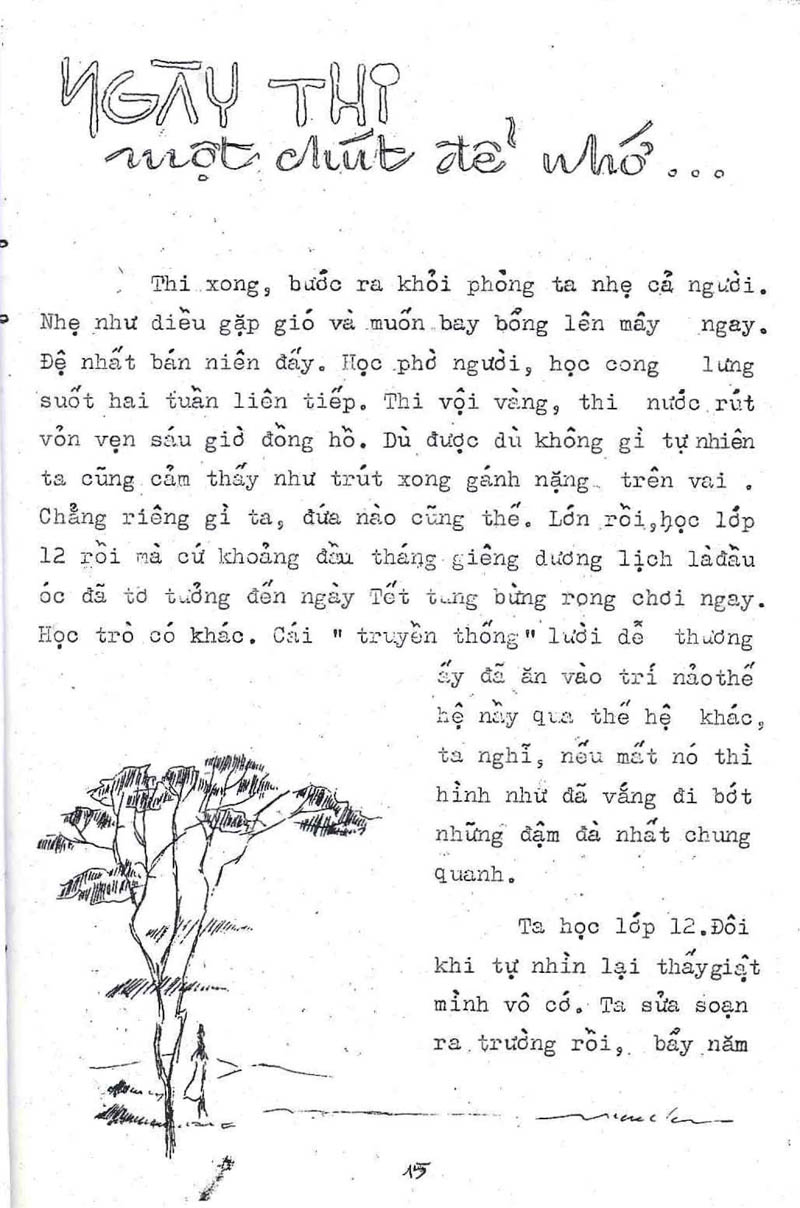 NGÀY THI
một chút để nhớ...
Thi xong, bước ra khỏi phòng ta nhẹ cả người.
Nhẹ như diều gặp gió và muốn bay bổng lên mây ngay.
Đệ nhất bán niên đấy. Học phờ người, học cong lưng
suốt hai tuần liên tiếp. Thi vội vàng, thi nước rút
vỏn vẹn sáu giờ đồng hồ. Dù được dù không gì tự nhiên
ta cũng cảm thấy như trút xong gánh nặng trên vai .
Chẳng riêng gì ta, đứa nào cũng thế. Lớn rồi,học lớp
12 rồi mà cứ khoảng đầu tháng giêng dương lịch làđầu
óc đã tơ tưởng đến ngày Tết tưng bừng rong chơi ngay.
Học trò có khác. Cái " truyền thống" lười dễ thương
ấy đã ăn vào trí nảothế
hệ nầy qua thế hệ khác,
ta nghĩ, nếu mất nó thì
hình như đã vắng đi bớt
những đậm đà nhất chung
quanh.
Ta học lớp 12.Đôi
khi tự nhìn lại thấygiật
mình vô cớ. Ta sửa soạn
ra trường rồi, bẩy năm
15